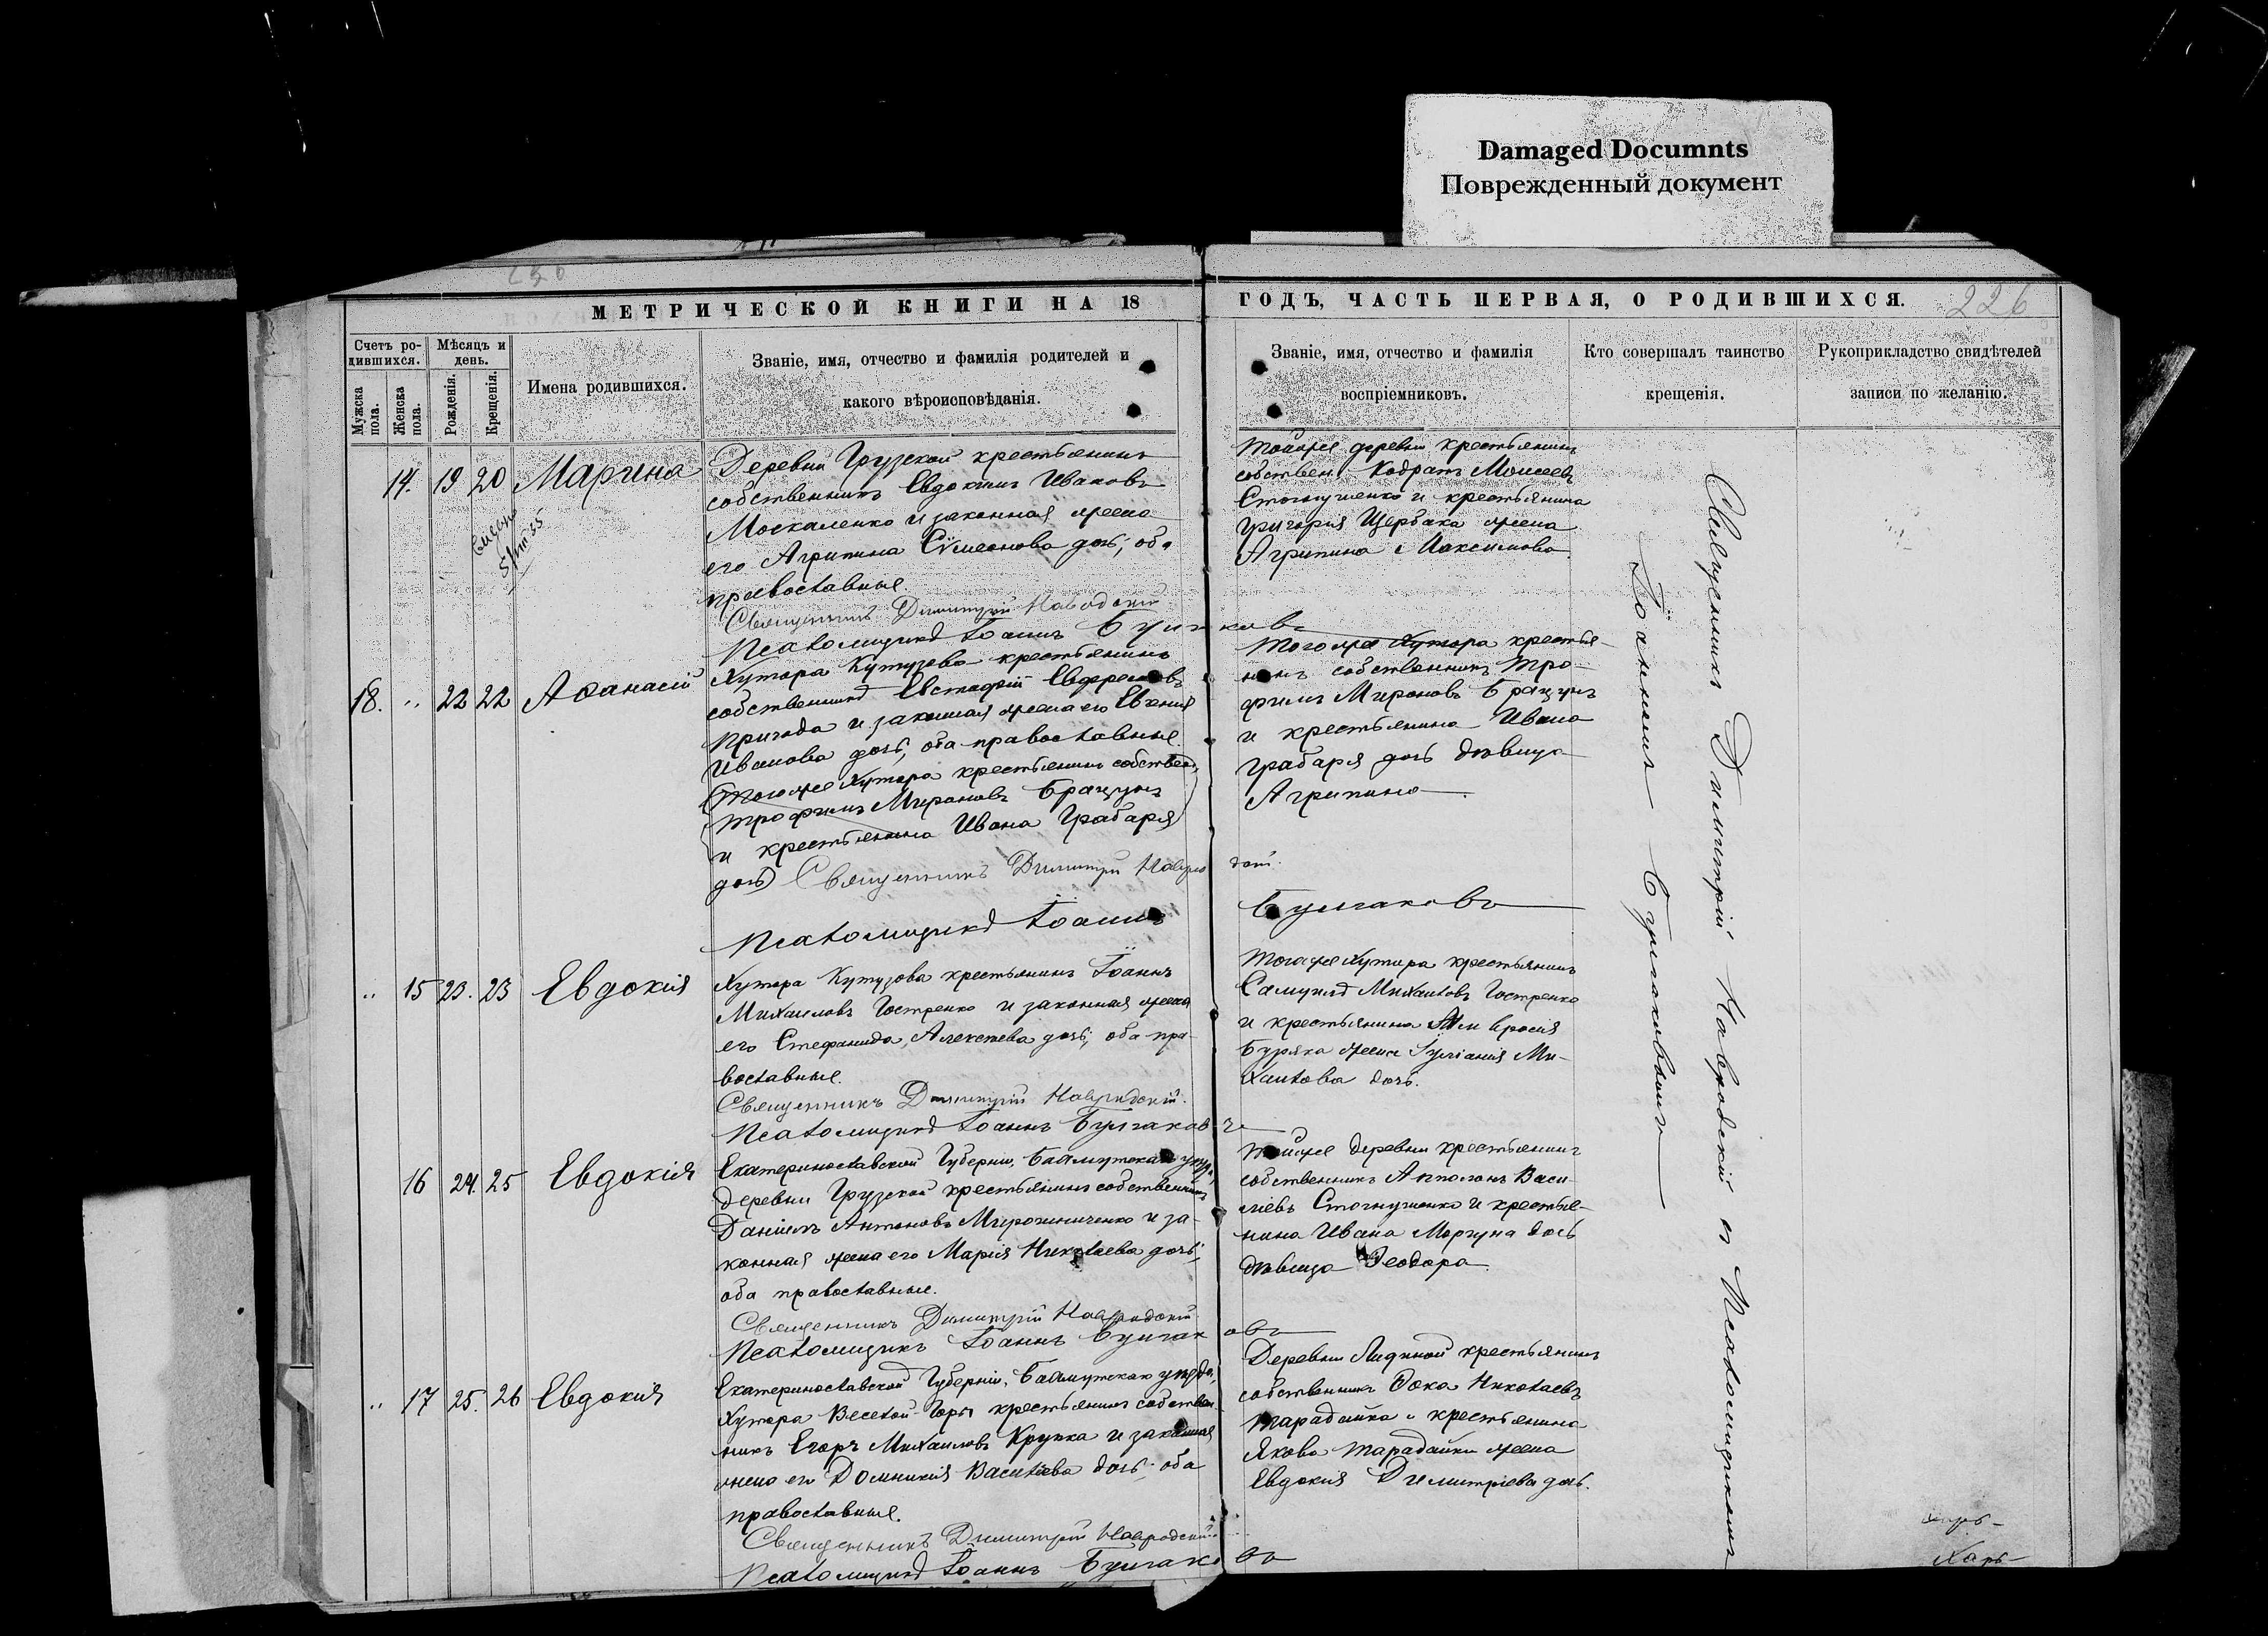 Damaged Documnts
Поврежденный документ
МЕТРИЧЕСКОЙ КНИГИ НА 18
ГОДЪ, ЧАСТЬ ПЕРВАЯ, О РОДИВШИХСЯ.
226
Счетъ родившихся.
Мѣсяцъ и день.
Мужска пола.
Женска пола.
Рожденія.
Крещенія.
Имена родившихся.
Званіе, имя, отчество и фамилія родителей и
какого вѣроисповѣданія.
Званіе, имя, отчество и фамилія
воспріемниковъ.
Кто совершалъ таинство
крещенія.
Рукоприкладство свидѣтелей
записи по желанію.
14. 19 20 Марина
Деревни Грузской крестьянинъ
собственникъ Евдокимъ Ивановъ
Москаленко и законная жена
его Агрипина Сѵмеонова дочь, оба
православные
Священникъ Димитрій Навродскій
Псаломщикъ Іоаннъ Булгаковъ
Тойже деревни крестьянинъ
собствен. Кодратъ Моисеевъ
Стогнушенко и крестьянина
Григорія Щербака жена
Агрипина Максимова.
18. " 22 22 Аѳанасій
Хутора Кутузова крестьянинъ
собственникъ Евстафій Евфремовъ
Пригода и законная жена его Евгенія
Иванова дочь, оба православные.
(Тогоже Хутора крестьянинъ собствен.
Трофимъ Мироновъ Брацунъ
и крестьянина Ивана Грабаря
дочь) Священникъ Димитрій Навродскій
Псаломщикъ Іоаннъ Булгаковъ
Тогоже Хутора крестья-
нинъ собственникъ Тро-
фимъ Мироновъ Брацунъ
и крестьянина Ивана
Грабаря дочь дѣвица
Агрипина.
" 15 23. 23 Евдокія
Хутора Кутузова крестьянинъ Іоаннъ
Михаиловъ Гостренко и законная жена
его Стефанида Алексѣева дочь, оба пра-
вославные.
Священникъ Димитрій Навродскій.
Псаломщикъ Іоаннъ Булгаковъ
Тогоже Хутора крестьянинъ
Самуилъ Михаиловъ Гостренко
и крестьянина Амвросія
Буряка жена Іуліанія Ми-
хаилова дочь.
16 24. 25 Евдокія
Екатеринославской Губерніи, Бахмутскаго уѣзд.
деревни Грузской крестьянинъ собственникъ
Даніилъ Антоновъ Мирошниченко и за-
конная жена его Марія Николаева дочь,
оба православные.
Священникъ Димитрій Навродскій
Псаломщикъ Іоаннъ Булгаковъ
Тойже деревни крестьянинъ
собственникъ Апполонъ Васи-
ліевъ Стогнушенко и крестья-
нина Ивана Моргуна дочь
дѣвица Ѳеодора.
" 17 25. 26 Евдокія
Екатеринославской Губерніи, Бахмутскаго уѣзда,
Хутора Веселой-Горы крестьянинъ собствен-
никъ Егоръ Михаиловъ Крупка и законная
жена его Домникія Василіева дочь, оба
православные.
Священникъ Димитрій Навродскій
Псаломщикъ Іоаннъ Булгаковъ
Деревни Лидиной крестьянинъ
собственникъ Ѳока Николаевъ
Тарадайка и крестьянина
Якова Тарадайки жена
Евдокія Димитріева дочь.
Священникъ Димитрій Навродскій и Псаломщикомъ
Іоанномъ Булгаковымъ